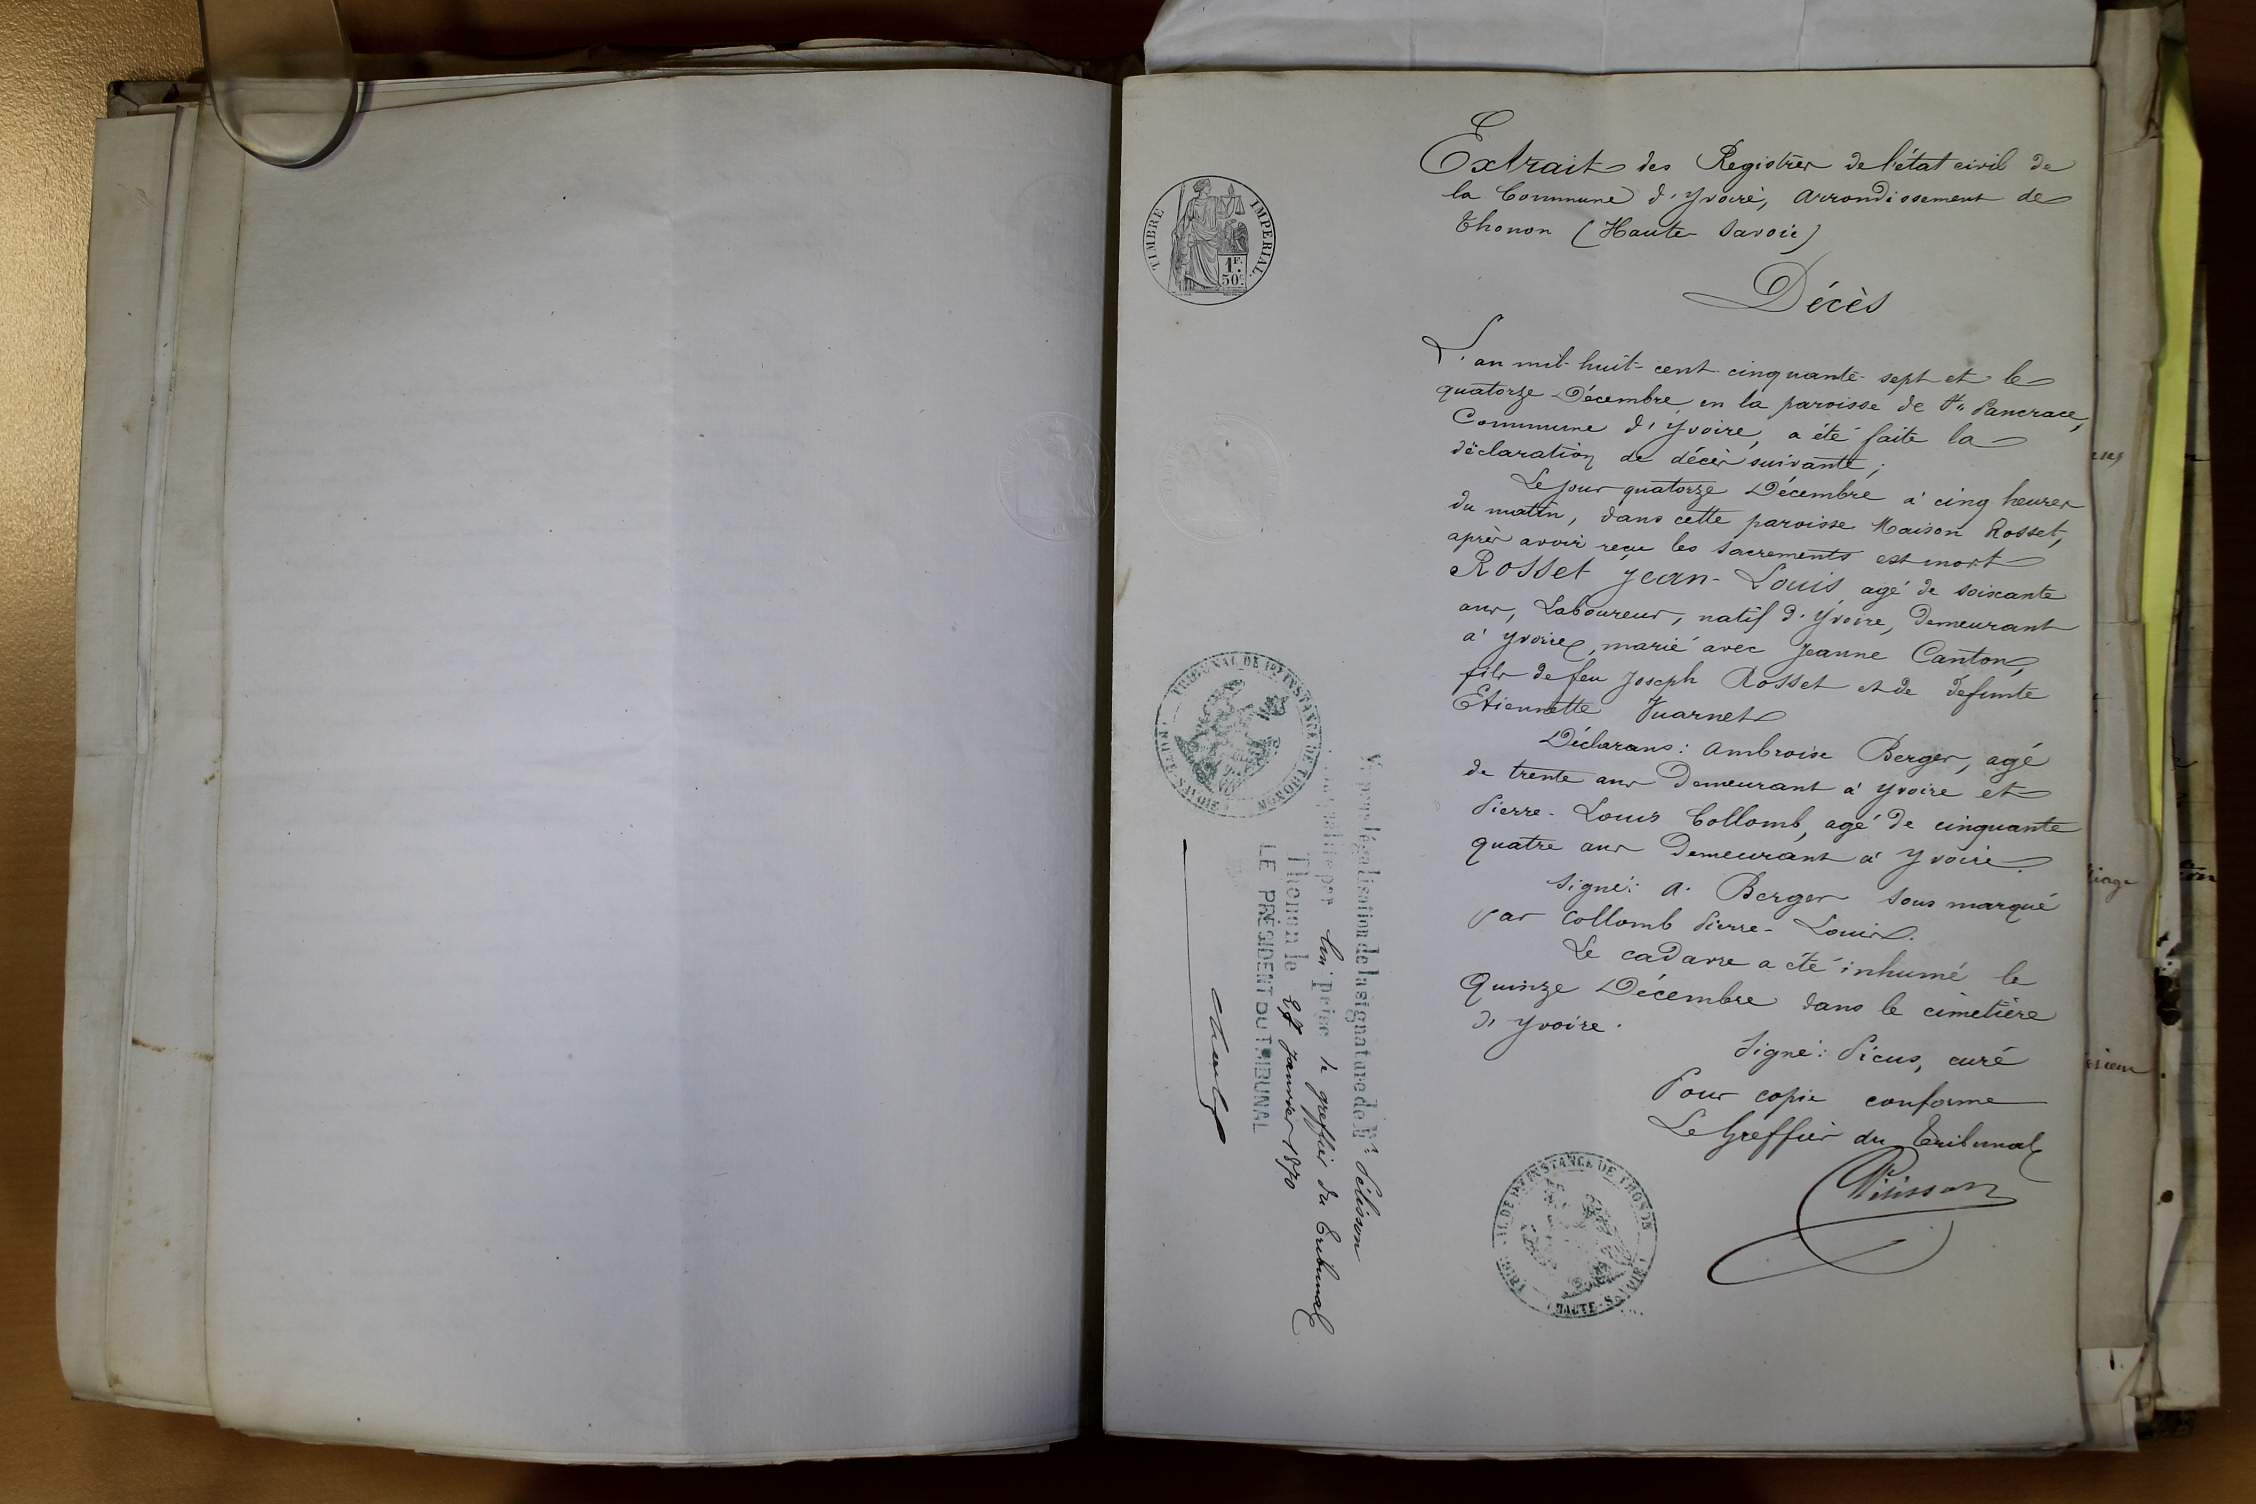 Extrait des Registres de l'état civil de
la Commune d'Yvoire, arrondissement de
Thonon (Haute-Savoie)
Décès
L'an mil-huit-cent-cinquante-sept et le
quatorze Décembre en la paroisse de St Pancrace,
Commune d'Yvoire, a été faite la
déclaration de décès suivante;
Le jour quatorze Décembre à cinq heures
du matin, dans cette paroisse Maison Rosset,
après avoir reçu les sacrements est mort
Rosset Jean-Louis agé de soixante
ans, Laboureur, natif d'Yvoire, Demeurant
à Yvoire, marié avec Jeanne Canton,
fils de feu Joseph Rosset et de defunte
Etiennette Vuarnet
Déclarans: Ambroise Berger, agé
de trente ans Demeurant à Yvoire et
Pierre-Louis Collomb, agé de cinquante
quatre ans Demeurant à Yvoire.
Signé: A. Berger sous marqué
par Collomb Pierre-Louis.
Le cadavre a été inhumé le
Quinze Décembre dans le cimetière
d'Yvoire.
Signé: Picus, curé
Pour copie conforme
Le Greffier du Tribunal
Pélisson
TRIB. DE 1RE INSTANCE DE THONON
(HAUTE-SAVOIE)
TIMBRE IMPERIAL.
1F.
50C.
TRIBUNAL DE 1RE INSTANCE DE THONON
HAUTE-SAVOIE
Vu pour légalisation de la signature de M Mr Pélisson
par lui prise le greffier du Tribunal
Thonon le 27 Janvier 1870
LE PRÉSIDENT DU TRIBUNAL